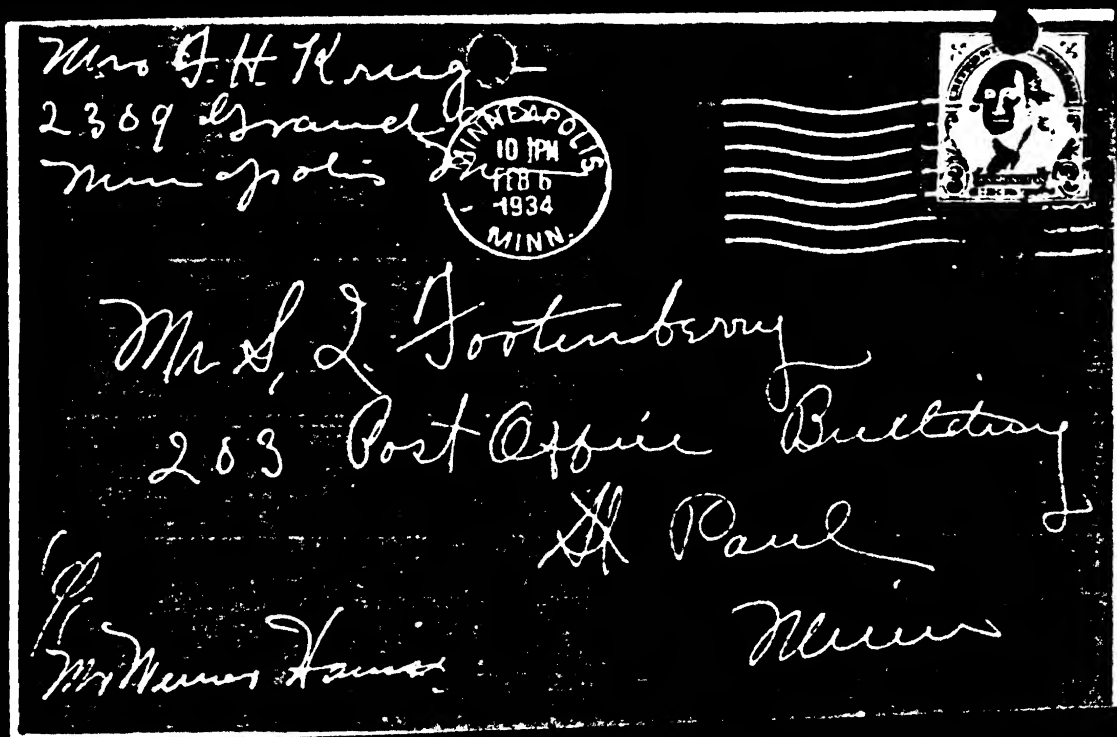 Mrs F. H. Krug
2309 Grand
Minneapolis
MINNEAPOLIS
10 PM
FEB 6
1934
MINN.
Mr S, L. Footenberry
203 Post Office Building
St Paul
Minn
Mr Werner Hanni